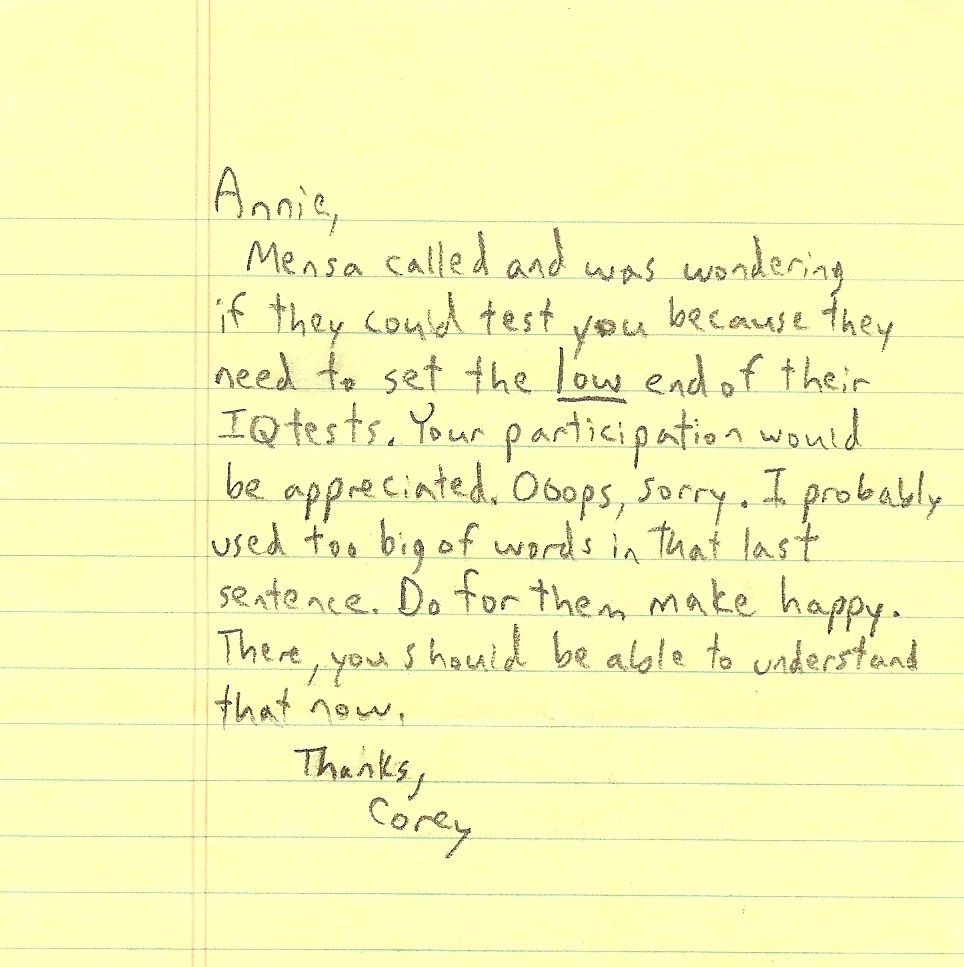 Annie,
Mensa called and was wondering
if they could test you because they
need to set the low end of their
IQ tests. Your participation would
be appreciated. Ooops, sorry. I probably
used too big of words in that last
sentence. Do for them make happy.
There, you should be able to understand
that now.
Thanks,
Corey